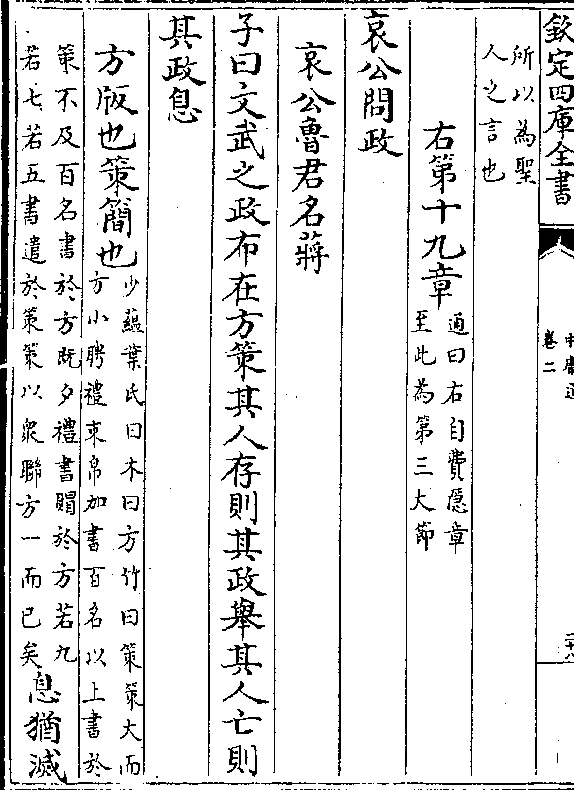 欽定四庫全書
中庸通
卷二
二十八
所以為聖
人之言也
右第十九章
通曰右自費隱章
至此為第三大節
哀公問政
哀公魯君名蔣
子曰文武之政布在方策其人存則其政舉其人亡則
其政息
方版也策簡也
少蘊葉氏曰木曰方竹曰策策大而
方小聘禮束帛加書百名以上書於
策不及百名書於方既夕禮書賵於方若九
若七若五書遣於策策以衆聯方一而已矣
息猶滅